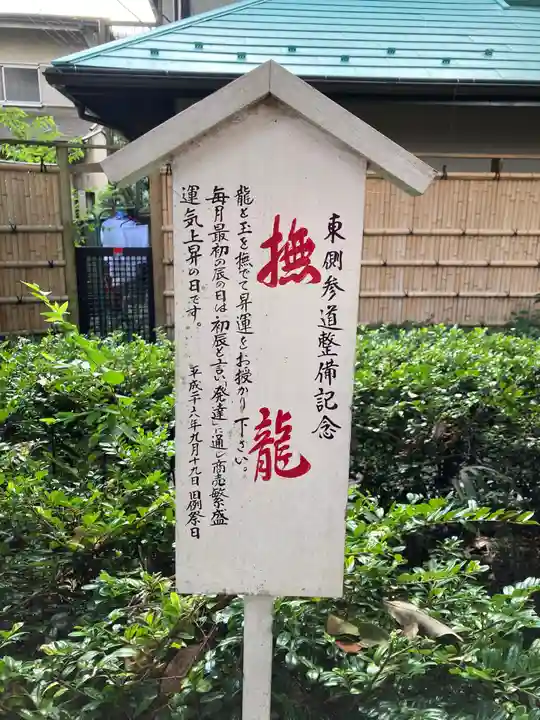 東側参道整備記念
撫龍
龍と玉を撫でて昇運をお授かり下さい。
毎月最初の辰の日は、初辰と言い「発達」に通じ商売繁盛
運気上昇の日です。
平成二十八年九月十九日 旧例祭日